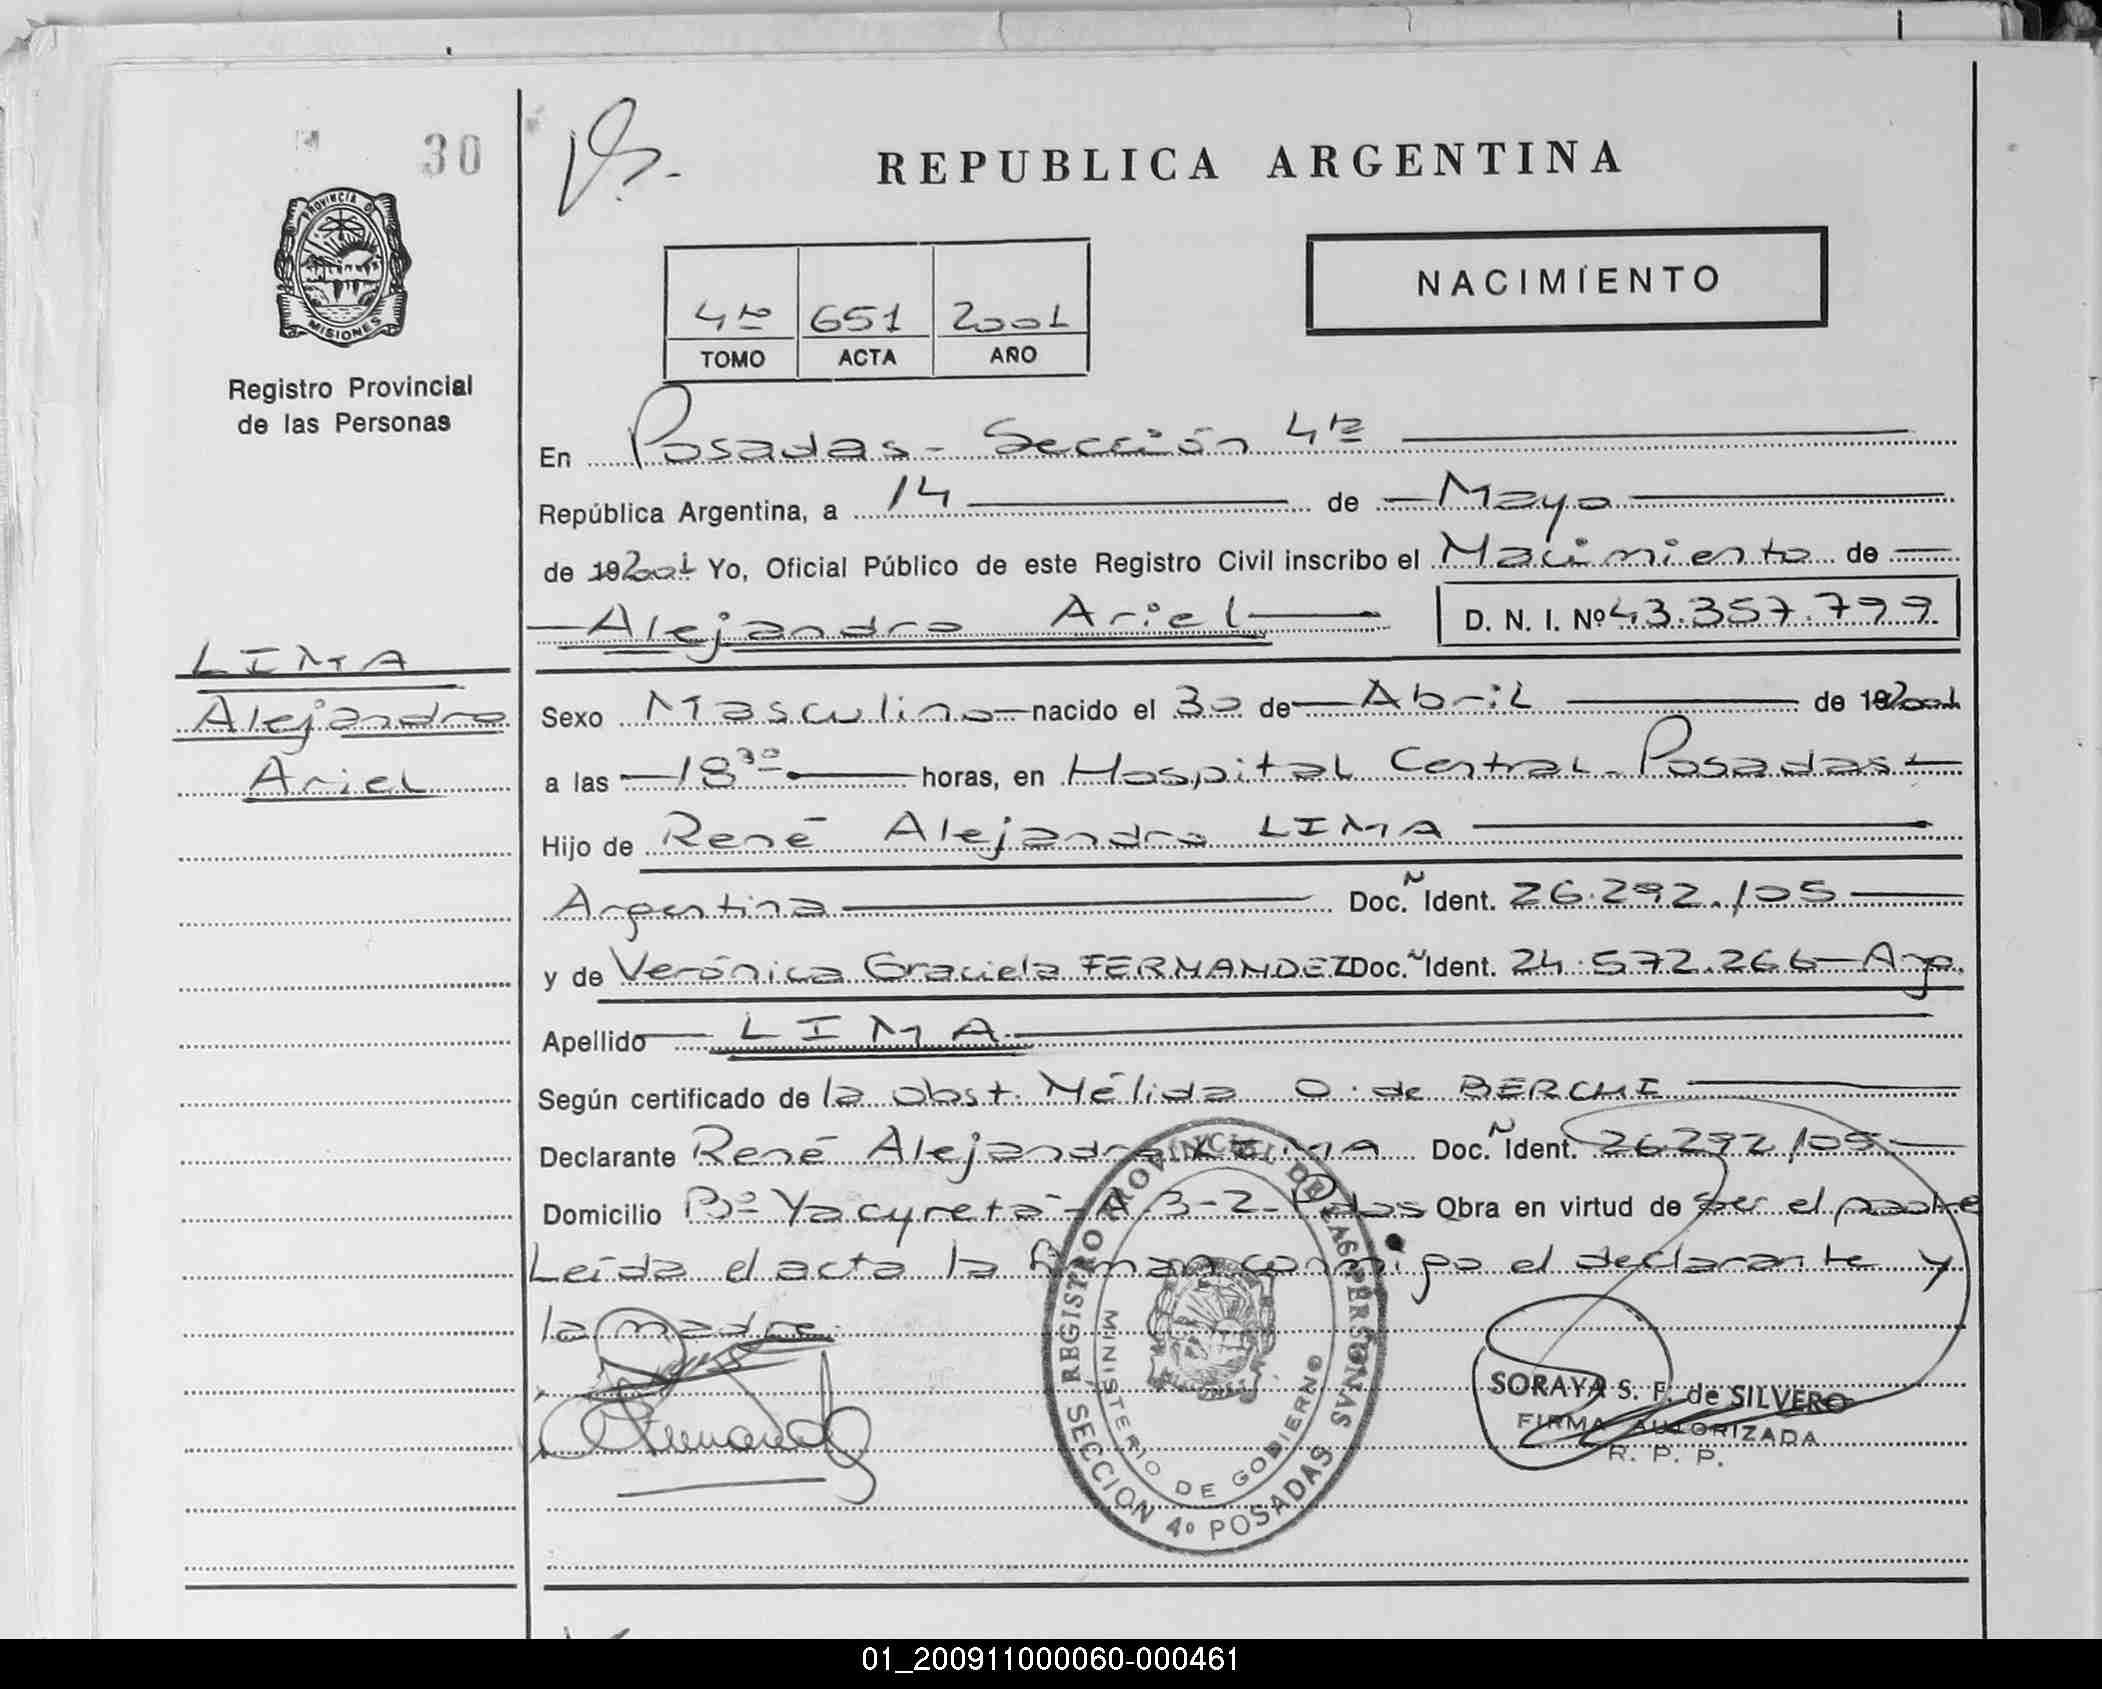 30
REPUBLICA ARGENTINA
PROVINCIA DE
MISIONES
NACIMIENTO
4to 651 2001
TOMO ACTA AÑO
Registro Provincial
de las Personas
En Posadas - Sección 4ta
República Argentina, a 14 de Mayo
de 192001 Yo, Oficial Público de este Registro Civil inscribo el Nacimiento de
Alejandro Ariel D. N. I. Nº 43.357.799
LIMA
Alejandro
Ariel
Sexo Masculino nacido el 30 de Abril de 192001
a las 18 30 horas, en Hospital Central - Posadas
Hijo de René Alejandro LIMA
Argentina Doc. N Ident. 26.292.105
y de Verónica Graciela FERNANDEZ Doc. N Ident. 24.572.266 - Arg.
Apellido LIMA
Según certificado de la obst. Nélida O. de BERCHI
Declarante René Alejandro LIMA Doc. N Ident. 26.292.105
Domicilio Bº Yacyretá - A 3-2- Pdas Obra en virtud de ser el padre
Leída el acta la firman conmigo el declarante y
la madre.
REGISTRO PROVINCIAL DE LAS PERSONAS
MINISTERIO DE GOBIERNO
SECCION 4º POSADAS
SORAYA S. F. de SILVERO
FIRMA AUTORIZADA
R. P. P.
01_200911000060-000461